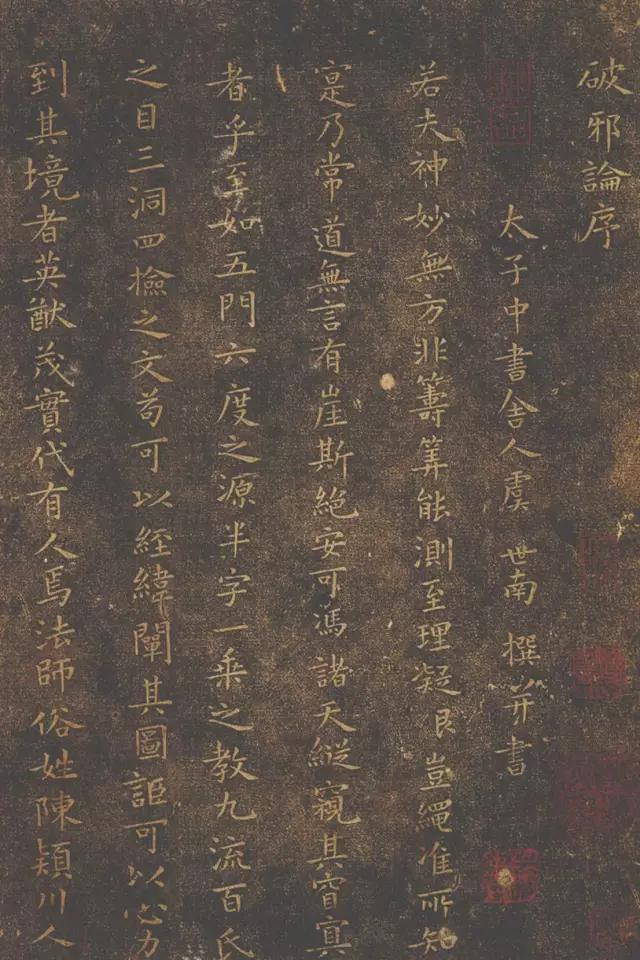 破邪論序
太子中書舍人虞世南撰并書
若夫神妙無方非籌筭能測至理凝㫐豈繩准所知
寔乃常道無言有崖斯絕安可馮諸天縱窺其窅寘
者乎至如五門六度之源半字一乗之教九流百氏
之目三洞四檢之文茍可以經緯闡其圖詎可以心力
到其境者英猷茂實代有人焉法師俗姓陳潁川人